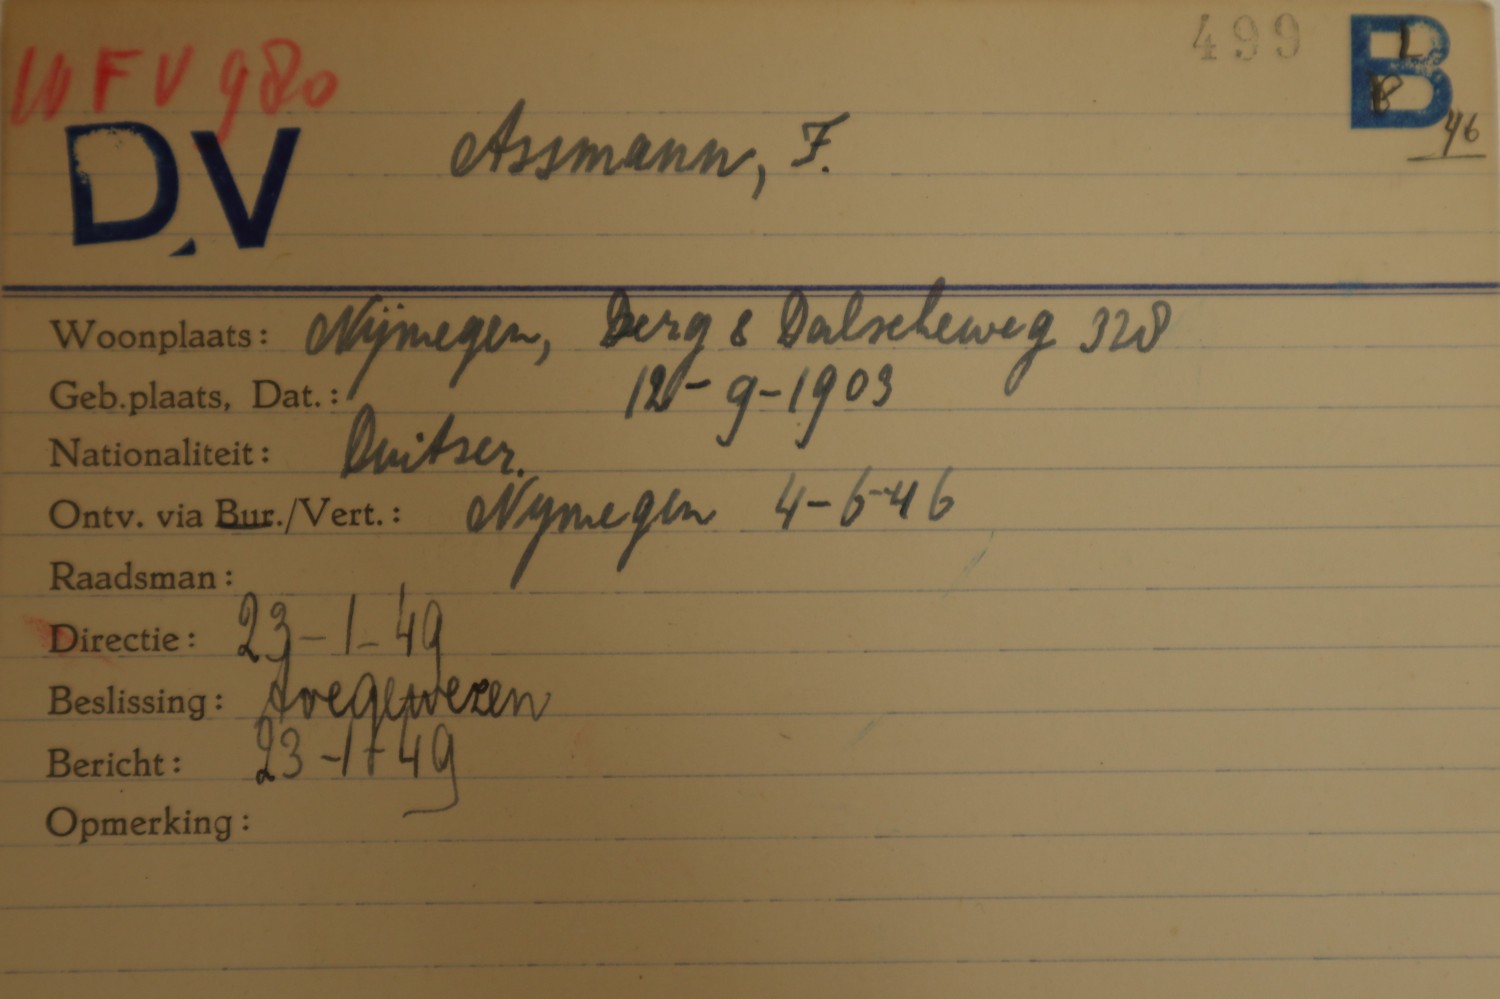 WFV 980
499
B
46
DV
Assmann, F.
Woonplaats: Nijmegen, Berg & Dalscheweg 328
Geb.plaats, Dat.: 12-9-1903
Nationaliteit: Duitser.
Ontv. via Bur./Vert.: Nymegen 4-6-46
Raadsman:
Directie: 23-1-49
Beslissing: toegewezen
Bericht: 23-1-49
Opmerking: